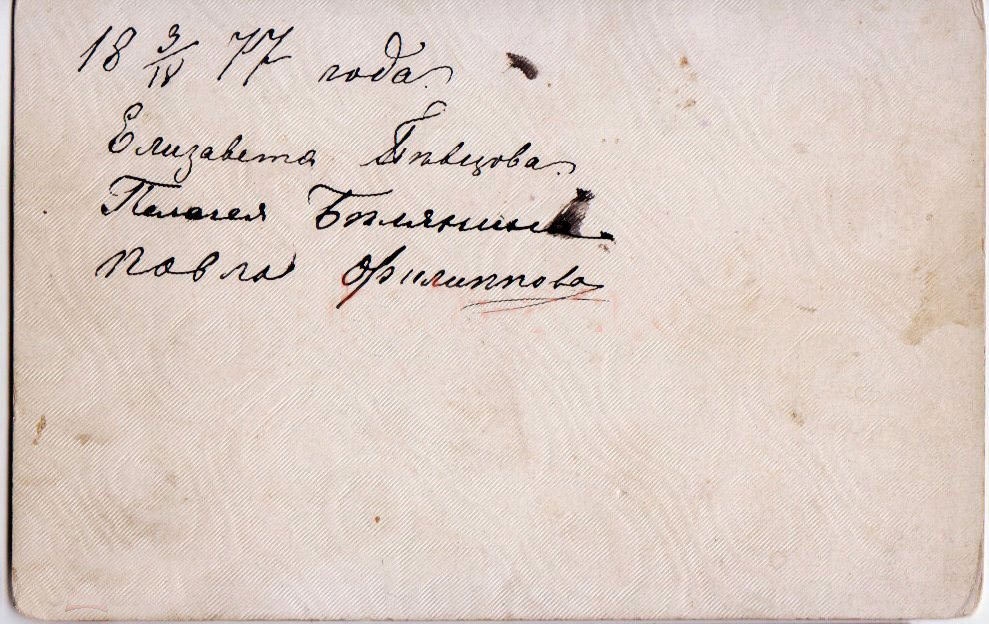 18 3/IV 77 года.
Елизавета Пѣвцова.
Пелагея Бѣлянина.
Павла Филиппова